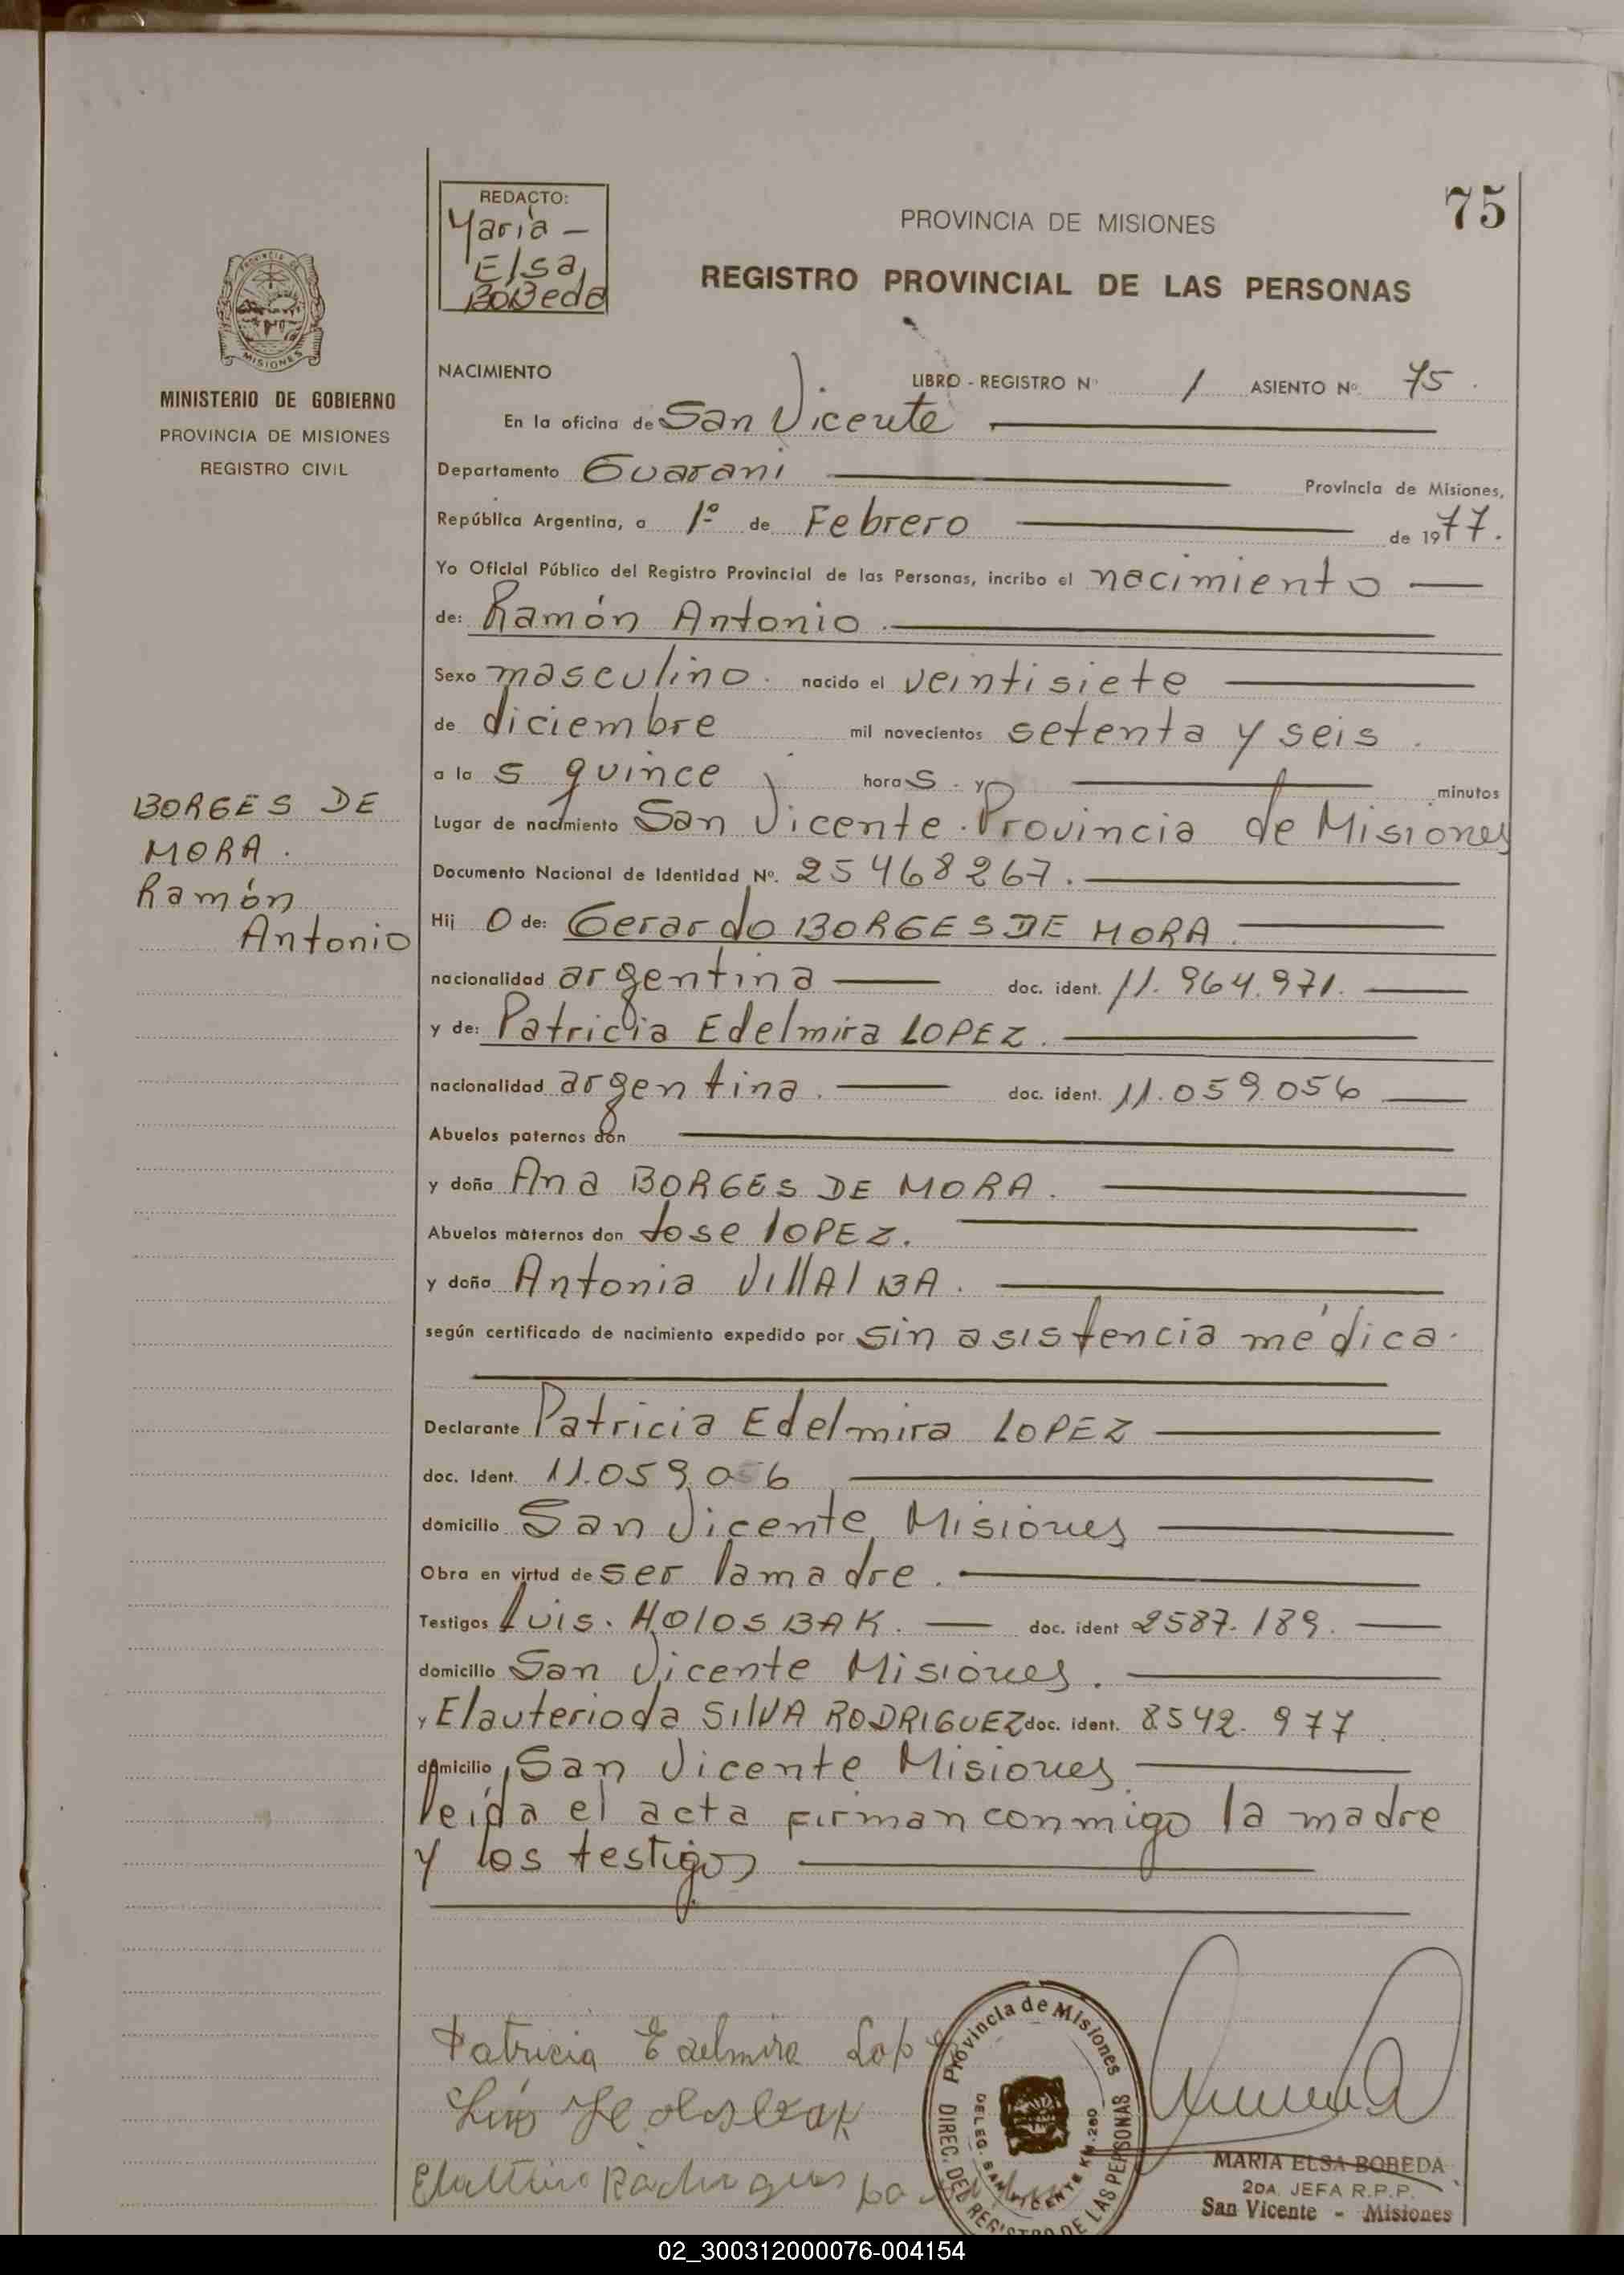 75
REDACTO:
María -
Elsa
BOBeda
PROVINCIA DE MISIONES
REGISTRO PROVINCIAL DE LAS PERSONAS
MISIONES
MINISTERIO DE GOBIERNO
PROVINCIA DE MISIONES
REGISTRO CIVIL
NACIMIENTO LIBRO - REGISTRO Nº 1 ASIENTO Nº 75.
En la oficina de San Vicente
Departamento Guarani Provincia de Misiones,
República Argentina, a 1º de Febrero de 1977.
Yo Oficial Público del Registro Provincial de las Personas, incribo el nacimiento
de: Ramón Antonio.
Sexo masculino. nacido el veintisiete
de diciembre mil novecientos setenta y seis.
a las quince horas. y minutos
Lugar de nacimiento San Vicente. Provincia de Misiones
Documento Nacional de Identidad Nº. 25468267.
Hijo de: Gerardo BORGES DE MORA.
nacionalidad argentina doc. ident. 11.964.971.
y de: Patricia Edelmira LOPEZ.
nacionalidad argentina. doc. ident. 11.059.056
Abuelos paternos don
y doña Ana BORGES DE MORA.
Abuelos maternos don Jose lOPEZ.
y doña Antonia VillAlBA.
según certificado de nacimiento expedido por sin asistencia médica.
Declarante Patricia Edelmira LOPEZ
doc. Ident. 11.059.056
domicilio San Vicente Misiones
Obra en virtud de ser la madre.
Testigos Luis. HOlOSBAK. doc. ident 2587.189.
domicilio San Vicente Misiones.
y Elauterio da SilVA RODRIGUEZ doc. ident. 8542.977
domicilio San Vicente Misiones
leída el acta firman conmigo la madre
y los testigos
BORGES DE
MORA.
Ramón
Antonio
Patricia Edelmira Lopez
Luis Holosbak
Provincia de Misiones
DIREC. DEL REGISTRO DE LAS PERSONAS
DELEG. SAN VICENTE KM. 260
MARIA ELSA BOBEDA
2DA. JEFA R.P.P.
San Vicente - Misiones
02_300312000076-004154